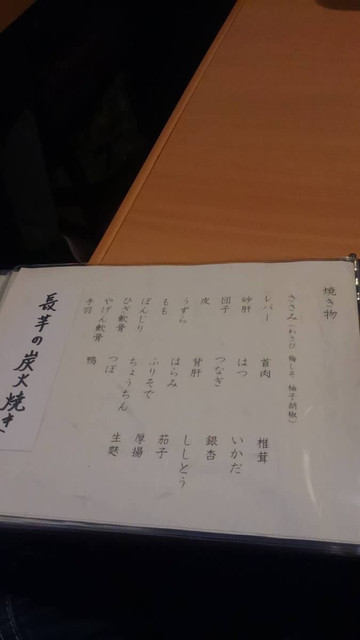 焼き物
ささみ（わさび 梅しそ 柚子胡椒）
レバー 首肉 椎茸
砂肝 はつ いかだ
団子 つなぎ 銀杏
皮 背肝 ししとう
うずら はらみ 茄子
もも ふりそで 厚揚
ぼんじり ちょうちん 生麩
ひざ軟骨 つぼ
やげん軟骨 鴨
手羽
長芋の炭火焼き